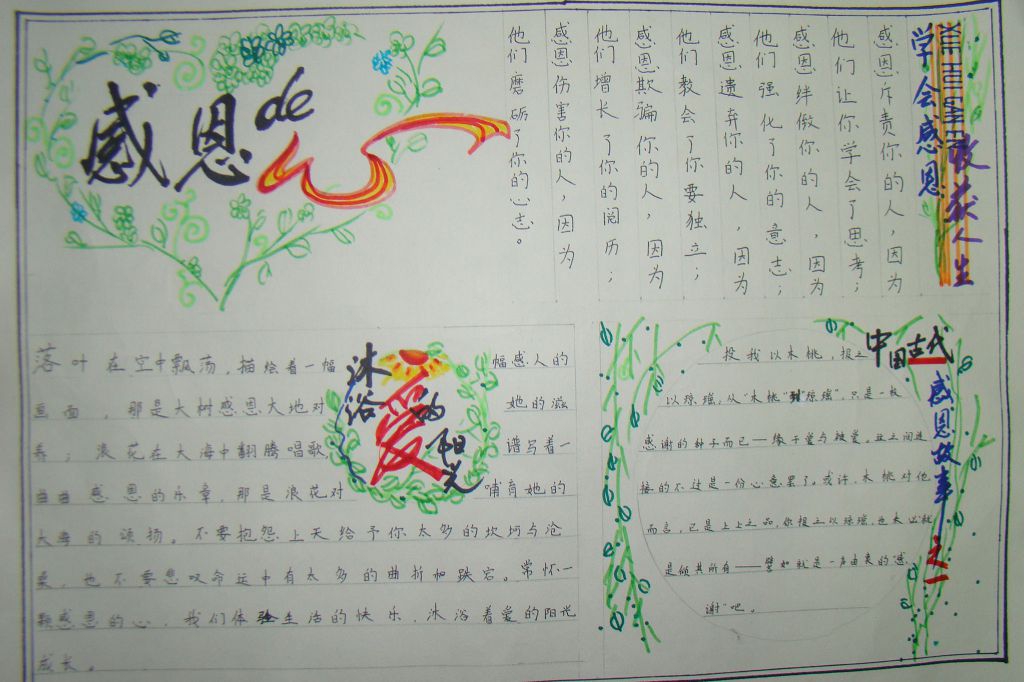 感恩de心
XUE HUI GAN EN
学会感恩
收获人生
感恩斥责你的人,因为
他们让你学会了思考;
感恩绊你的人,因为
他们强化了你的意志;
感恩遗弃你的人,因为
他们教会了你要独立;
感恩欺骗你的人,因为
他们增长了你的阅历;
感恩伤害你的人,因为
他们磨砺了你的心志。
沐浴
爱的
阳光
落叶在空中飘荡,描绘着一幅幅感人的
画面,那是大树感恩大地对她的滋
养;浪花在大海中翻腾唱歌,谱写着一
曲曲感恩的乐章,那是浪花对哺育她的
大海的颂扬。不要抱怨上天给予你太多的坎坷与沧
桑,也不要悲叹命运中有太多的曲折和跌宕。常怀一
颗感恩的心,我们体验生活的快乐,沐浴着爱的阳光
成长。
中国古代
感恩故事之一
投我以木桃,报之
以琼瑶,从"木桃"到"琼瑶",只是一枚
感谢的种子而已——缘于爱与被爱。且之间连
接的不过是一份心意罢了。或许,木桃对他
而言,已是上上之品,你报之以琼瑶,也未必就
是倾其所有——譬如就是一声由衷的"感
谢"吧。